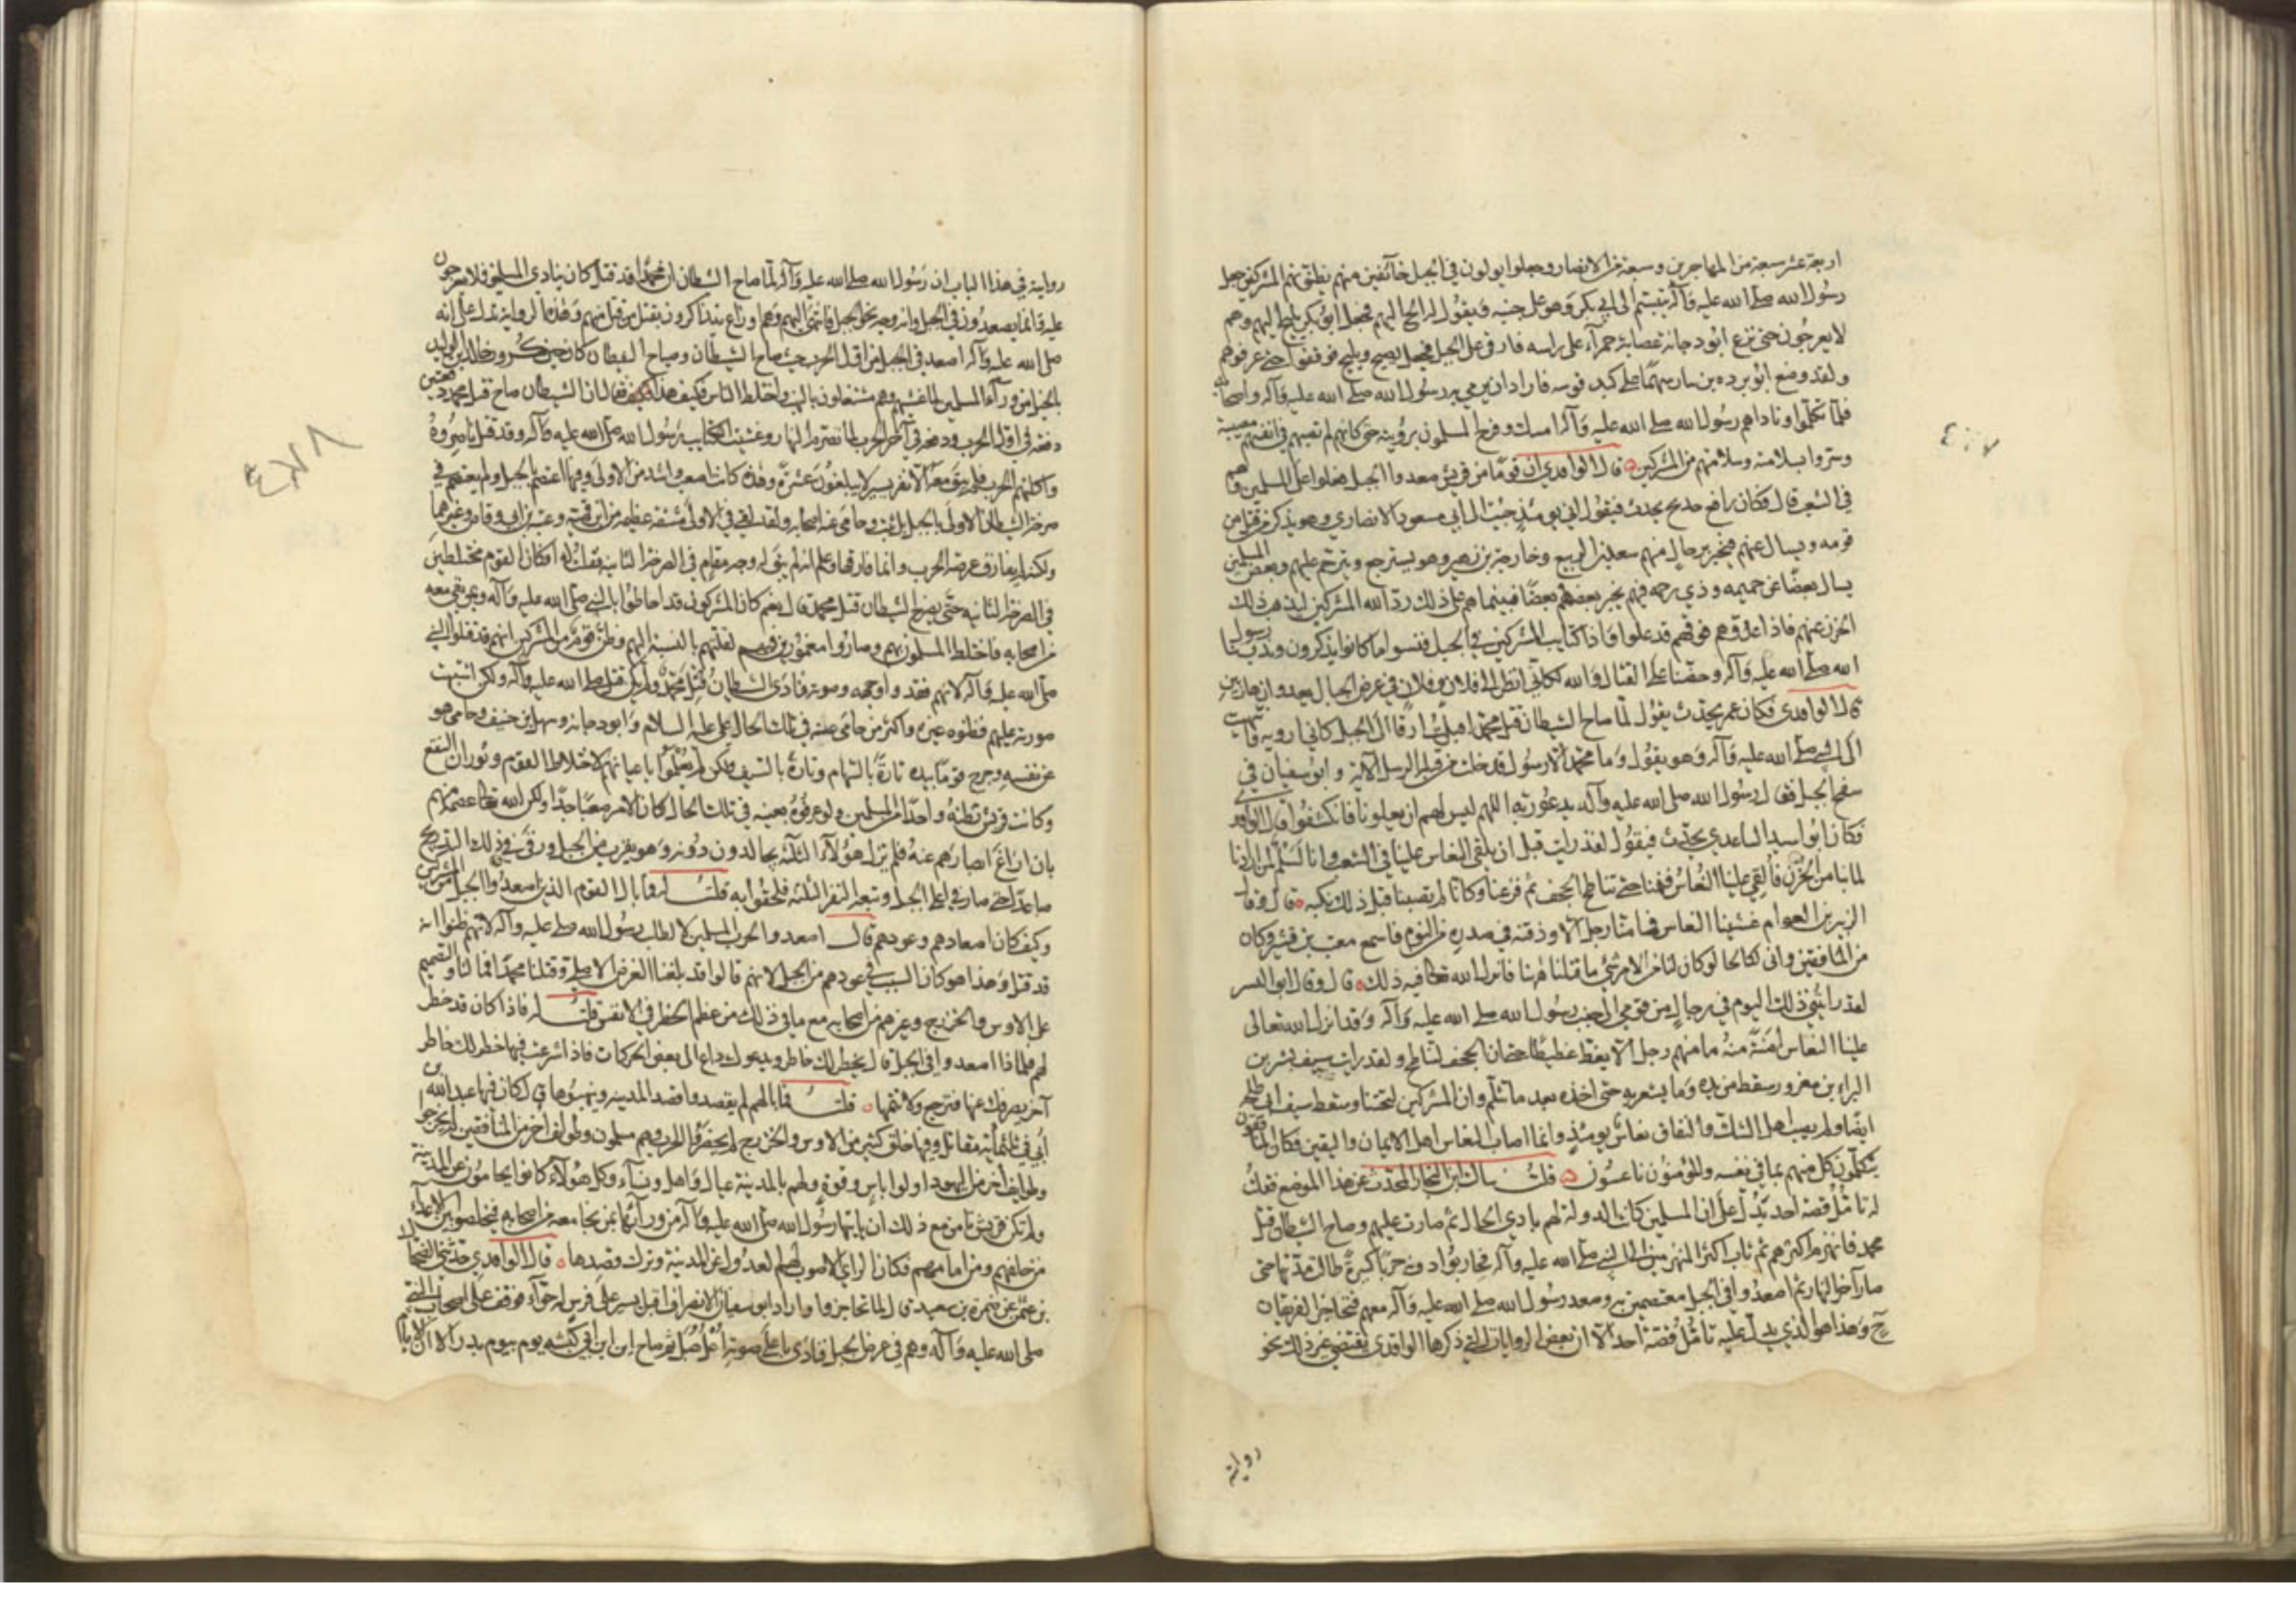 اربعة عشر سبعة من المهاجرين وسبعة من الانصار وجعلوا يولون في الجبل خائفين منهم يظنونهم المشركين جعل
رسول الله صلى الله عليه وآله يتبسم الى ابي بكر وهو على جنبه ويقول له الح اليهم فجعل ابو بكر يليح اليهم وهم
لا يعرجون حتى نزع ابو دجانة عصابة حمرآء على راسه فاوفى على الجبل فجعل يصيح ويليح فوقفوا حتى عرفوهم
ولقد وضع ابو برده بن نيار سهما على كبد قوسه فاراد ان يرمي به رسول الله صلى الله عليه وآله واصحابه
فلما تكلموا وناداهم رسول الله صلى الله عليه وآله امسك وفرح المسلمون برؤيته حتى كانهم لم تصبهم في انفسهم مصيبة
وسروا بسلامته وسلامتهم من المشركين قال الواقدي ان قوما من قريش صعدوا الجبل فعلوا على المسلمين وهم
في الشعب قال فكان رافع خديج يحدث فيقول اني يومئذ جنب الى ابي مسعود الانصاري وهو يذكر من قتل من
قومه ويسال عنهم فيخبر برجال منهم سعد بن الربيع وخارجة بن زهير وهو يسترجع ويترحم عليهم وبعض المسلمين
يسال بعضا عن حميمه وذي رحمه فهم يخبر بعضهم بعضا فبينما هم على ذلك رد الله المشركين ليذهب ذلك
الحزن عنهم فاذا عدوهم فوقهم قد علوا واذا كتايب المشركين في الجبل فنسوا ما كانوا يذكرون وندبنا رسول
الله صلى الله عليه وآله وحضنا على القتال والله لكاني انظر الى فلان وفلان في عرض الجبال يعدوان هاربين
قال الواقدي فكان عمر يحدث يقول لما صاح الشيطان قتل محمد اقبلت ارقا الى الجبل كاني ارويه فانتهيت
الى النبي صلى الله عليه وآله وهو يقول وما محمد الا رسول قد خلت من قبله الرسل الآية وابو سفيان في
سفح الجبل فقال رسول الله صلى الله عليه وآله يدعو ربه اللهم ليس لهم ان يعلونا فانكشفوا قال الواقدي
فكان ابو اسيد الساعدي يحدث فيقول لقد رايتنا قبل ان يلقى النعاس علينا في الشعب وانا لسلم لمن ارادنا
لما بنا من الحزن فالقي علينا النعاس فنمنا حتى تناطح الحجف ثم فزعنا وكانا لم يصبنا قبل ذلك نكبه قال وقال
الزبير بن العوام غشينا النعاس فما منا رجل الا وذقنه في صدره من النوم فاسمع معتب بن قشير وكان
من المنافقين واني لكالحالم لو كان لنا من الامر شئ ما قتلنا ههنا فانزل الله تعالى فيه ذلك قال وقال ابو اليسر
لقد رايتني ذلك اليوم في رجال من قومي الى جنب رسول الله صلى الله عليه وآله وقد انزل الله تعالى
علينا النعاس امنة منه ما منهم رجل الا يغط غطيطا حتى ان الحجف لتناطح ولقد رايت سيف بشر بن
البراء بن معرور سقط من يده وما يشعر به حتى اخذه بعد ما تثلم وان المشركين لتحتنا وسقط سيف ابي طلحة
ايضا ولم يصب اهل الشك والنفاق نعاس يومئذ وانما اصاب النعاس اهل الايمان واليقين فكان المنافقون
يتكلمون كل منهم بما في نفسه والمؤمنون ناعسون قلت سالت ابن النجار المحدث عن هذا الموضع فقلت
له تامل قصة احد يدل على ان المسلمين كانت الدولة لهم بادي الحال ثم صارت عليهم وصاح الشيطان قتل
محمد فانهزم اكثرهم ثم ثاب اكثر المنهزمين الى النبي صلى الله عليه وآله فحاربوا دونه حربا كثيرة طالت مدتها حتى
صار آخر النهار ثم اصعدوا في الجبل معتصمين به وصعد رسول الله صلى الله عليه وآله معهم فتحاجز الفريقان
ح وهذا هو الذي يدل عليه تامل قصة احد الا ان بعض الروايات التي ذكرها الواقدي يقتضي غير ذلك نحو
روايته
رواية في هذا الباب ان رسول الله صلى الله عليه وآله لما صاح الشيطان ان محمدا قد قتل كان ينادي المسلمين فلا يعرجون
عليه وانما يصعدون في الجبل وانه وجه نحو الجبل فانتهى اليهم وهم اوزاع يتذاكرون بقتل من قتل منهم وهذه الرواية تدل على انه
صلى الله عليه وآله اصعد في الجبل من اول الحرب حيث صاح الشيطان وصياح الشيطان كان حين كر خالد بن الوليد
بالخيل من ورآء المسلمين لما غشيهم وهم مشتغلون بالنهب واختلط الناس فكيف هذا فقال ان الشيطان صاح قتل محمد دفعتين
دفعة في اول الحرب ودفعة في آخر الحرب لما تصرم النهار وغشيت الكتايب رسول الله صلى الله عليه وآله وقد قتل ناصروه
واكلتهم الحرب فلم يبق معه الا نفر يسير لا يبلغون عشرة وهذه كانت اصعب واشد من الاولى وفيها اعتصم بالجبل ولم يعتصم في
صرخة الشيطان الاولى بالجبل بل ثبت وحامى عنه اصحابه ولقد لقي في الاولى مشقة عظيمة من ابن قمية وعتبة بن ابي وقاص وغيرهما
ولكنه لم يفارق عرصة الحرب وانما فارقها وعلم انه لم يبق له وجه مقام في الصرخة الثانية فقلت له افكان القوم مختلطين
في الصرخة الثانية حتى يصرخ الشيطان قتل محمد قال نعم كان المشركون قد احاطوا بالنبي صلى الله عليه وآله وبمن بقي معه
من اصحابه فاختلط المسلمون بهم وصاروا مغمورين بينهم لقلتهم بالنسبة اليهم وظن قوم من المشركين انهم قد قتلوا النبي
صلى الله عليه وآله لانهم فقدوا وجهه وصوته فنادى الشيطان قتل محمد ولم يكن قتل صلى الله عليه وآله ولكن اشتبهت
صورته عليهم فظنوه غيره واكثر من حامى عنه في تلك الحال علي عليه السلام وابو دجانة وسهل بن حنيف وحامى هو
عن نفسه وجرح قوما بيده تارة بالسهام وتارة بالسيف ولكن لم يعلموا باعيانهم لاختلاط القوم وثوران النقع
وكانت قريش تظنه واحدا من المسلمين ولو عرفوه بعينه في تلك الحال كان الامر صعبا جدا ولكن الله تعالى عصمه منهم
بان ازاغ ابصارهم عنه فلم يزل هؤلآء الثلثة يجالدون دونه وهو يقرب من الجبل ورقى في ذلك التدريج
صاعدا حتى صار في اعلى الجبل وتبعه النفر الثلثة فلحقوا به قلت له فما بال القوم الذين صعدوا الجبل من المشركين
وكيف كان اصعادهم وعودهم قال اصعدوا لحرب المسلمين لا لطلب رسول الله صلى الله عليه وآله لانهم ظنوا انه
قد قتل وهذا هو كان السبب في عودهم من الجبل لانهم قالوا قد بلغنا الغرض الاصلي وقتلنا محمدا فما لنا والتصميم
على الاوس والخزرج وغيرهم من اصحابه مع ما في ذلك من عظم الخطر في الانفس قلت له فاذا كان قد خطر
لهم فلماذا اصعدوا في الجبل قال يخطر لك خاطر ويدعوك داع الى بعض الحركات فاذا شرعت فيها خطر لك خاطر
آخر يصرفك عنها فترجع ولا تتمها قلت فما بالهم لم يقصدوا قصد المدينه وينهبوها قال كان فيها عبد الله بن
ابي في ثلثمائة مقاتل وفيها خلق كثير من الاوس والخزرج لم يحضروا الحرب وهم مسلمون وطوائف اخر من المنافقين لم يخرجوا
وطوايف اخر من اليهود اولوا باس وقوة ولهم بالمدينة عيال واهل ونسآء وكل هؤلآء كانوا يحامون عن المدينة
ولم تكن قريش تامن مع ذلك ان ياتيها رسول الله صلى الله عليه وآله من ورآئها بمن يجامعه من اصحابه فيحصلوا بين الاعدآء
من خلفهم ومن امامهم فكان الراي الاصوب لهم العدول عن المدينة وترك قصدها قال الواقدي حدثني الضحاك
بن عثمن عن ضمرة بن سعيد قال لما تحاجزوا واراد ابو سفيان الانصراف اقبل يسير على فرس له حوآء فوقف على اصحاب النبي
صلى الله عليه وآله وهم في عرض الجبل فنادى باعلى صوته اعل هبل ثم صاح اين ابن ابي كبشه يوم بيوم بدر الا ان الايام